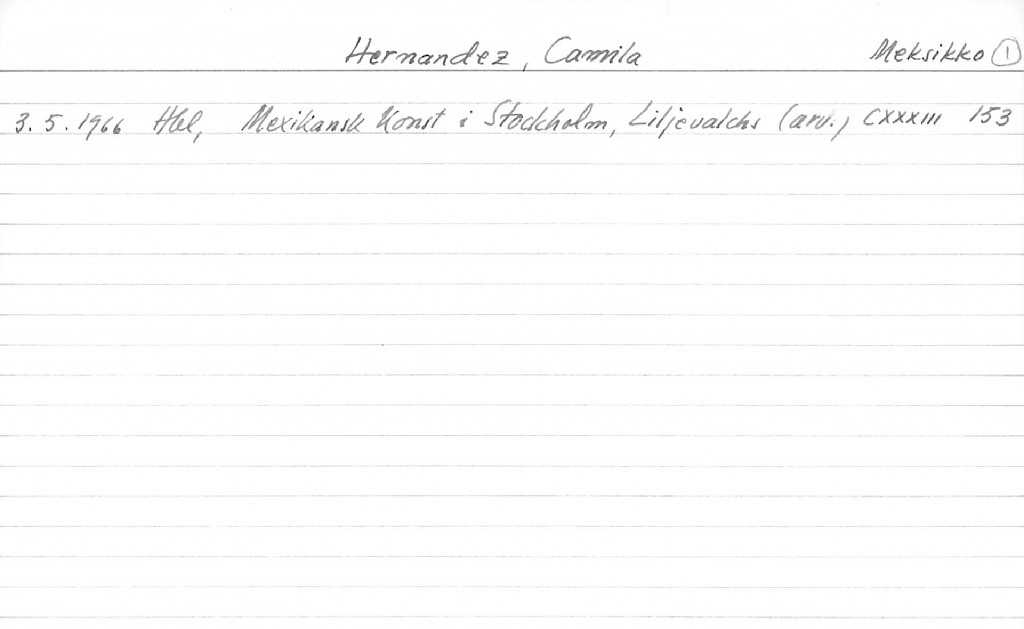 Hernandez, Camila Meksikko 1
3.5.1966 Hbl, Mexikansk Konst i Stockholm, Liljevalchs (arv.) CXXXIII 153